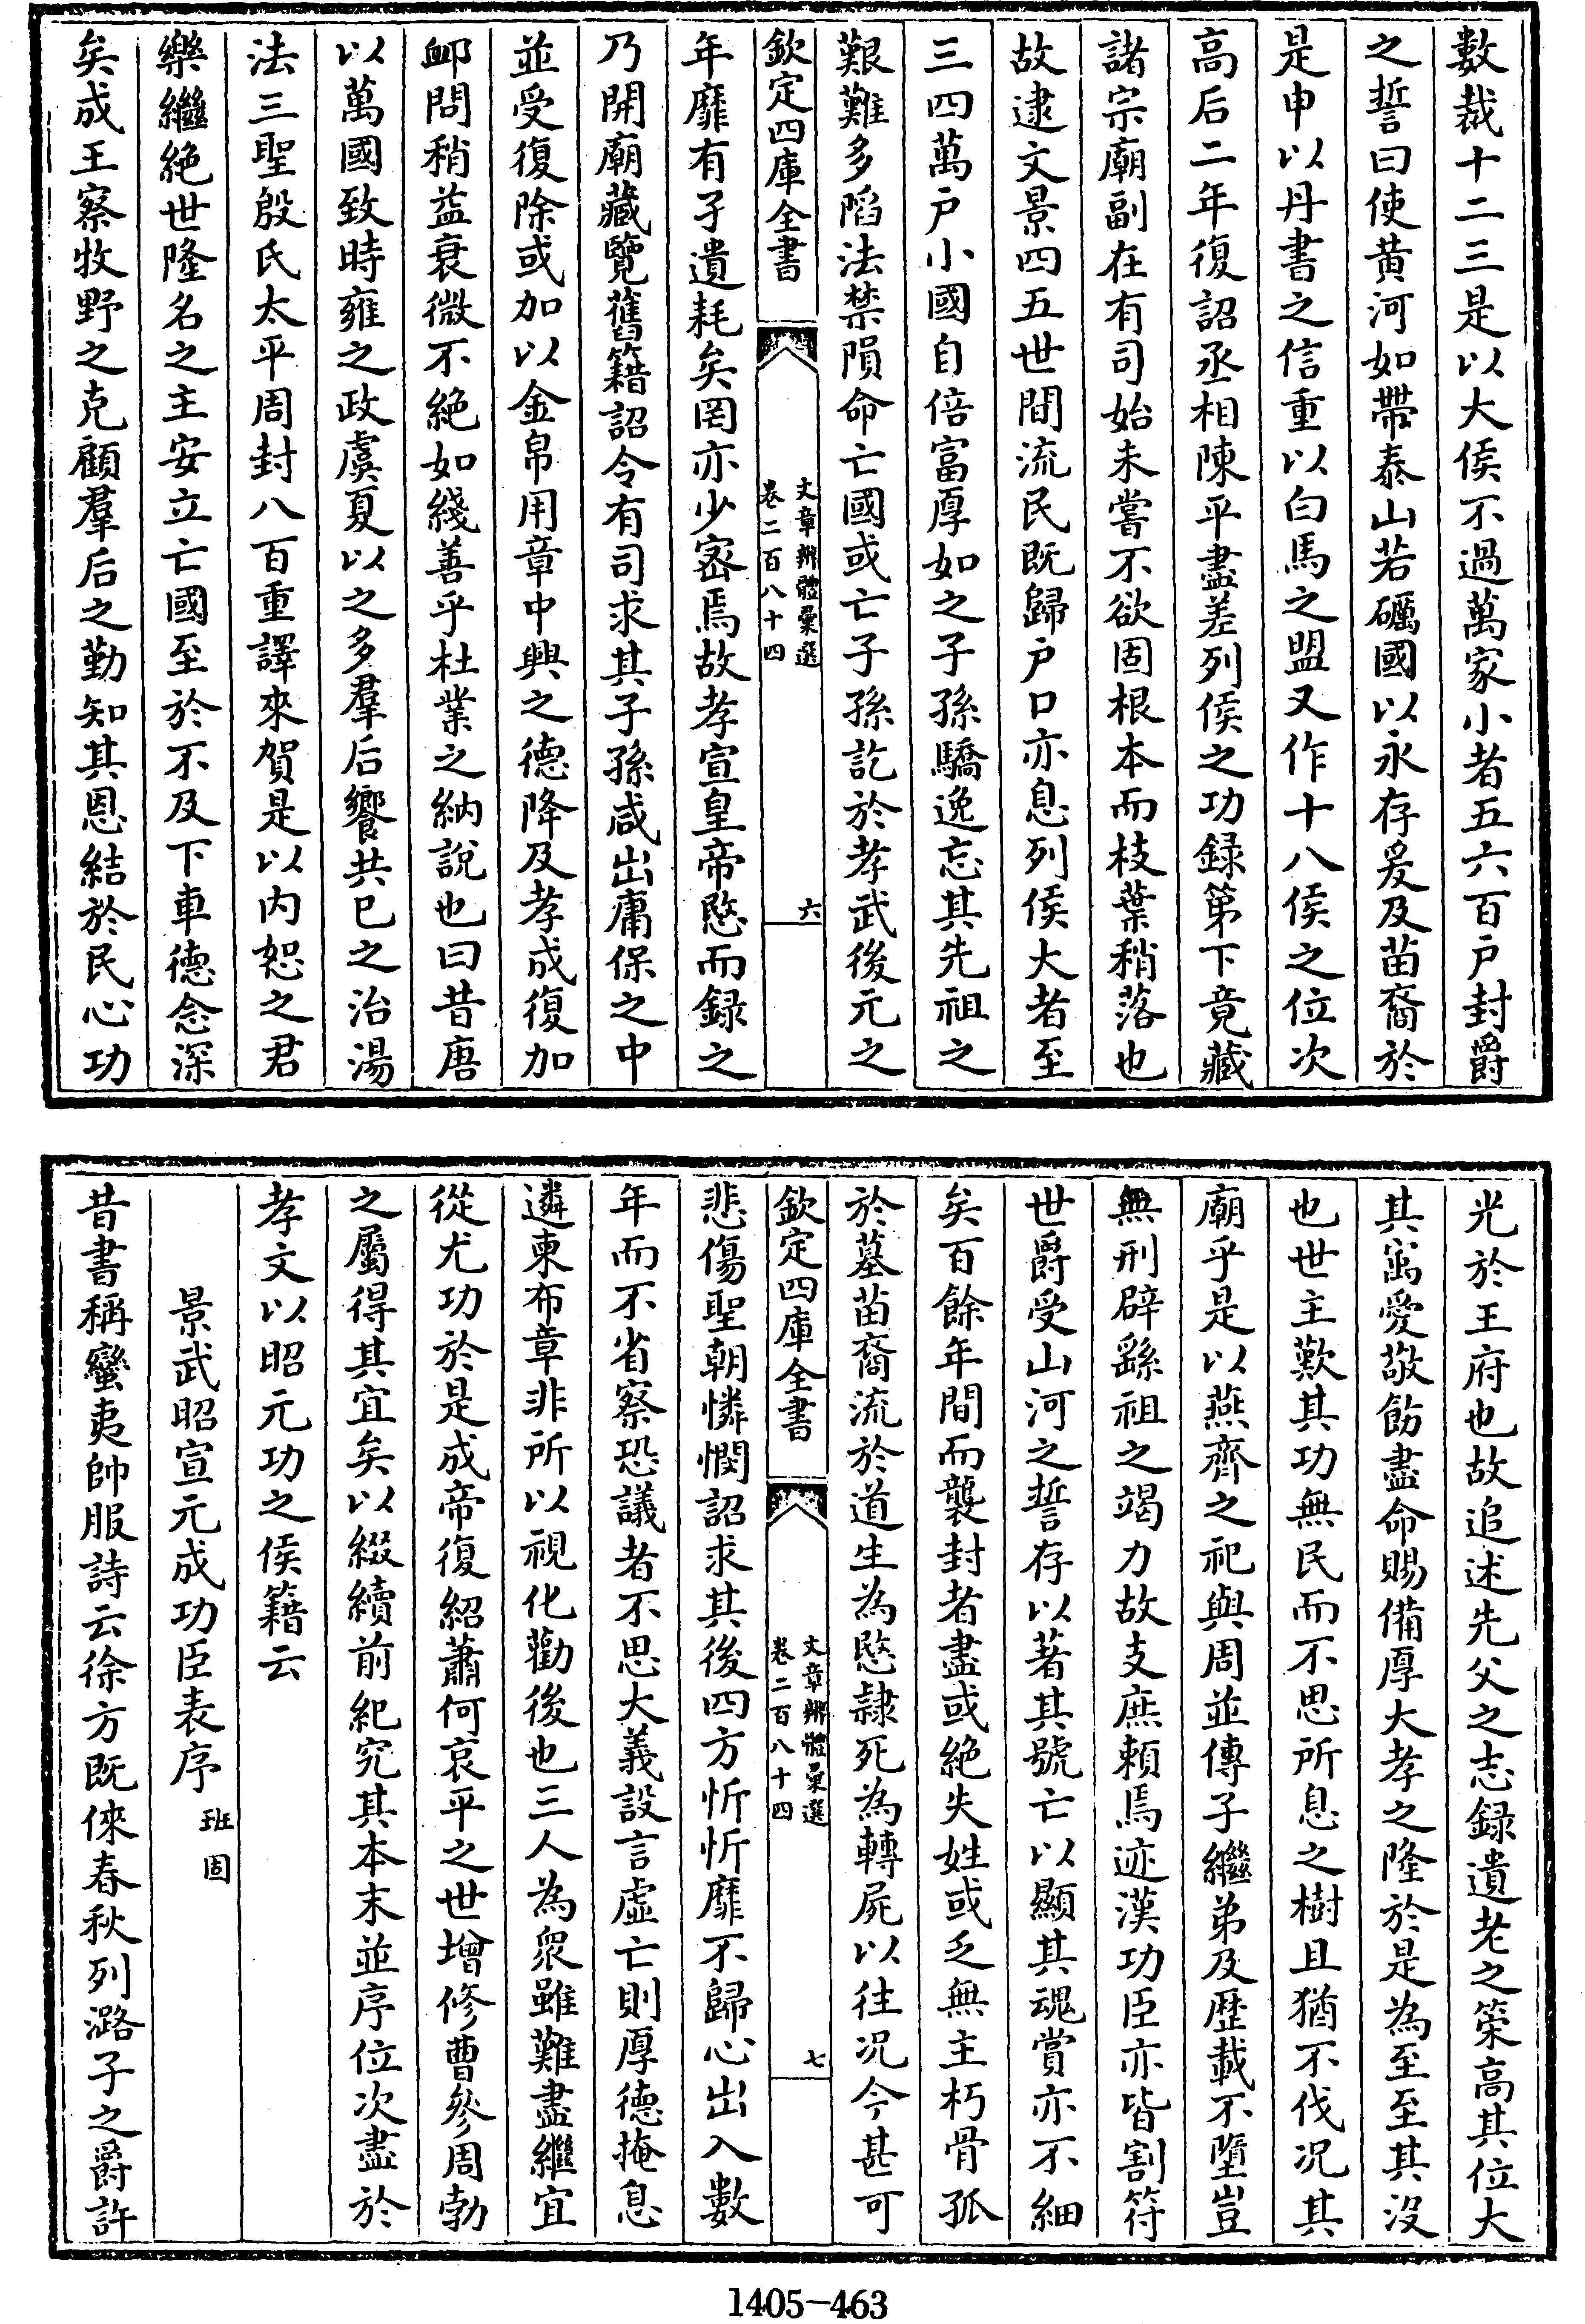 數裁十二三是以大侯不過萬家小者五六百户封爵
之誓曰使黄河如帶泰山若礪國以永存爰及苗裔於
是申以丹書之信重以白馬之盟又作十八侯之位次
髙后二年復詔丞相陳平盡差列侯之功録第下竟藏
諸宗廟副在有司始未嘗不欲固根本而枝葉稍落也
故逮文景四五世間流民既歸户口亦息列侯大者至
三四萬户小國自倍富厚如之子孫驕逸忘其先祖之
艱難多䧟法禁隕命亡國或亡子孫訖於孝武後元之
欽定四庫全書
文章辨體彚選
卷二百八十四
六
年靡有孑遺耗矣罔亦少宻焉故孝宣皇帝愍而録之
乃開廟藏覽舊籍詔令有司求其子孫咸出庸保之中
並受復除或加以金帛用章中興之德降及孝成復加
䘏問稍益衰微不絶如綫善乎杜業之納說也曰昔唐
以萬國致時雍之政虞夏以之多羣后饗共已之治湯
法三聖殷氏太平周封八百重譯來賀是以内恕之君
樂繼絶世隆名之主安立亡國至於不及下車德念深
矣成王察牧野之克顧羣后之勤知其恩結於民心功
光於王府也故追述先父之志録遺老之策髙其位大
其㝢愛敬飭盡命賜備厚大孝之隆於是為至至其没
也世主歎其功無民而不思所息之樹且猶不伐况其
廟乎是以燕齊之祀與周並傳子繼弟及歴載不墮豈
無刑辟繇祖之竭力故支庶頼焉迹漢功臣亦皆割符
世爵受山河之誓存以著其號亡以顯其魂賞亦不細
矣百餘年間而襲封者盡或絶失姓或乏無主朽骨孤
於墓苗裔流於道生為愍隷死為轉屍以往况今甚可
欽定四庫全書
文章辨體彚選
卷二百八十四
七
悲傷聖朝憐憫詔求其後四方忻忻靡不歸心出入數
年而不省察恐議者不思大義設言虚亡則厚德掩息
遴柬布章非所以視化勸後也三人為衆雖難盡繼宜
從尤功於是成帝復紹蕭何哀平之世增修曹參周勃
之屬得其宜矣以綴續前紀究其本末並序位次盡於
孝文以昭元功之侯籍云
景武昭宣元成功臣表序 班固
昔書稱蠻夷帥服詩云徐方既倈春秋列潞子之爵許
1405-463